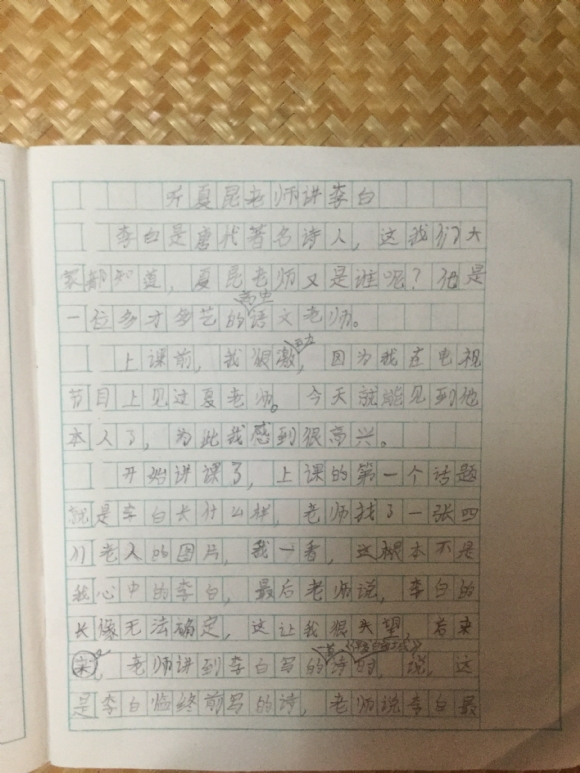 听夏昆老师讲李白
李白是唐代著名诗人，这我们大
家都知道，夏昆老师又是谁呢？他是
一位多才多艺的高中语文老师。
上课前，我很激动，因为我在电视
节目上见过夏老师。今天就能见到他
本人了，为此我感到很高兴。
开始讲课了，上课的第一个话题
就是李白长什么样，老师找了一张四
川老人的图片，我一看，这根本不是
我心中的李白，最后老师说，李白的
长像无法确定，这让我很失望，后来
，老师讲到李白写的诗时，说，这
是李白临终前写的诗，老师说李白最